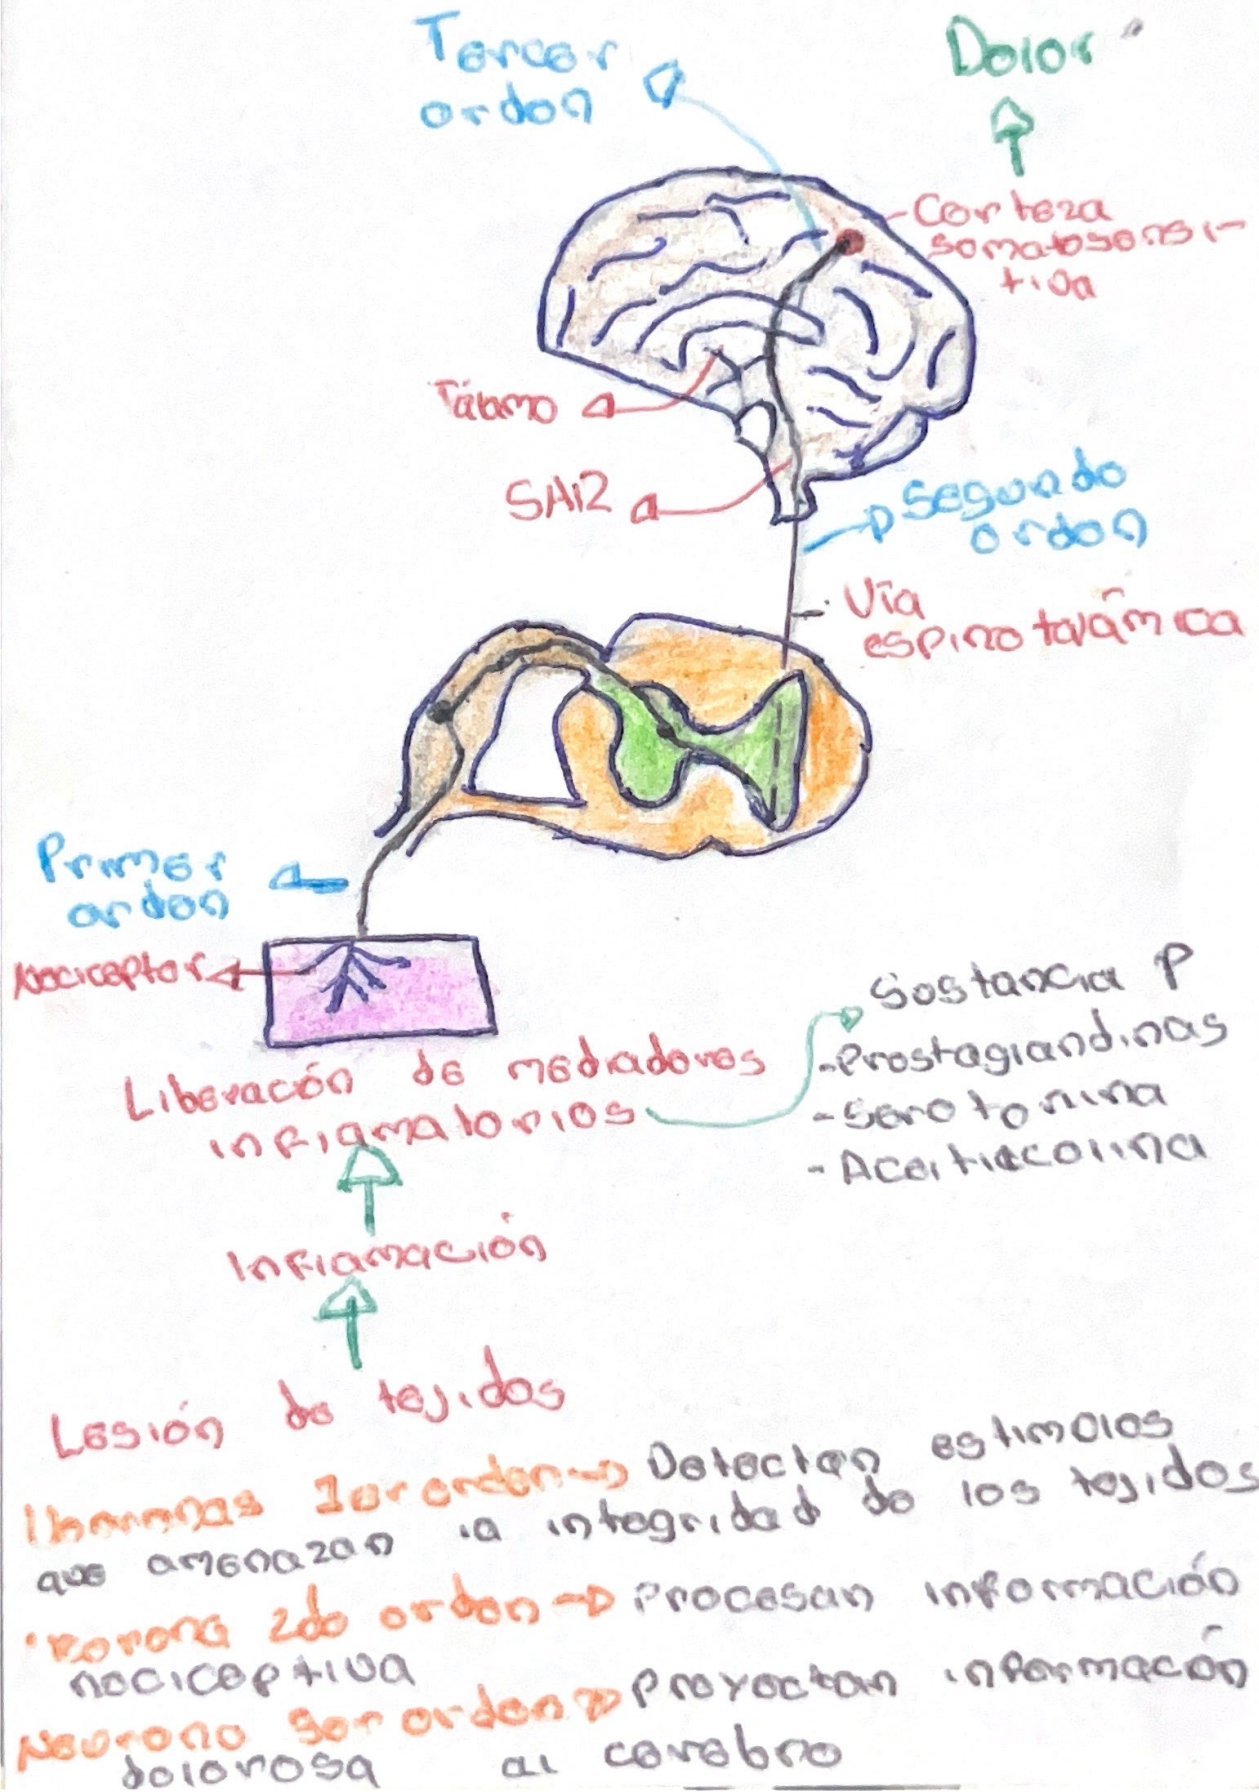 Tercer
orden
Dolor
Corteza
somatosensi-
tiva
Tálamo
Segundo
orden
Vía
espinotalámica
Primer
orden
Nociceptor
Liberación de mediadores
inflamatorios
Sustancia P
-Prostaglandinas
-Serotonina
-
Inflamación
Lesión de tejidos
1er orden → Detectan estímulos
que amenazan la integridad de los tejidos
2do orden → Procesan información
nociceptiva
Neurona 3er orden → Proyectan información
dolorosa al cerebro